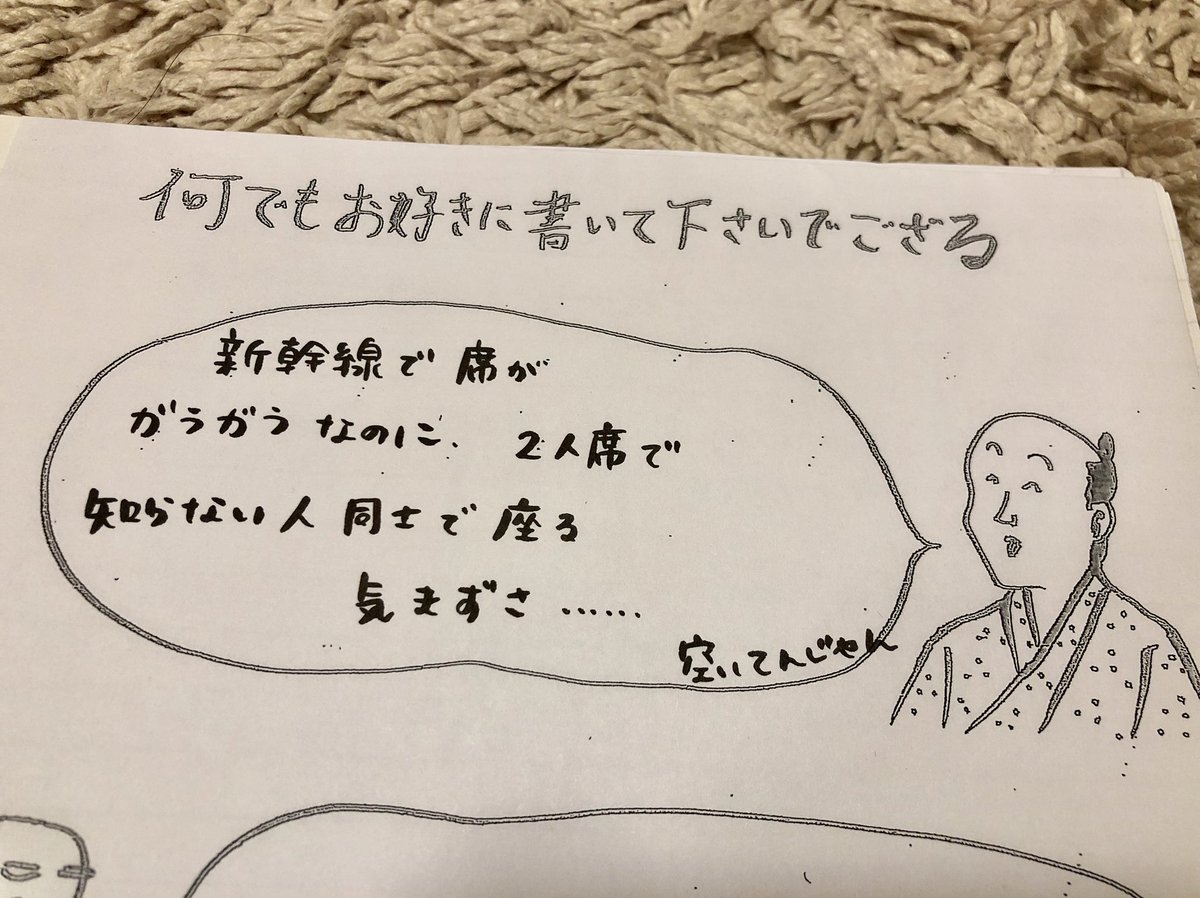 何でもお好きに書いて下さいでござる
新幹線で 席が
がらがら なのに、 2人席で
知らない人 同士で 座る
気まずさ ……
空いてんじゃん